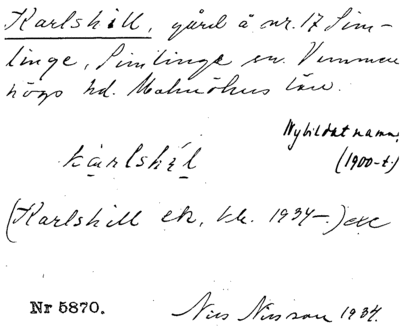 Karlshill, gård å nr. 17 Sim-
linge, Simlinge sn. Vemmen
högs hd. Malmöhus län.
Nybildat namn,
(1900-t.)
karlshil
(Karlshill ek, bl. 1934-.) etc
Nr 5870.
Nils Nilsson 1934.